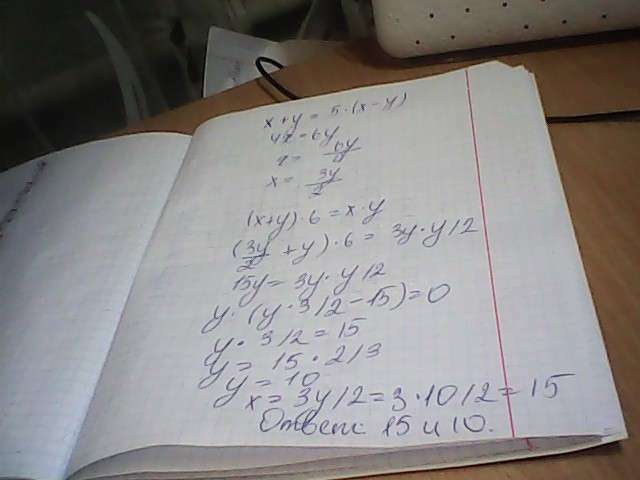 x+y = 5·(x-y)
4x=6y
x= 6y/4
x= 3y/2
(x+y)·6=x·y
(3y/2 +y)·6= 3y·y/2
15y=3y·y/2
y·(y·3/2-15)=0
y·3/2=15
y= 15·2/3
y=10
x=3y/2=3·10/2=15
Ответ: 15 и 10.